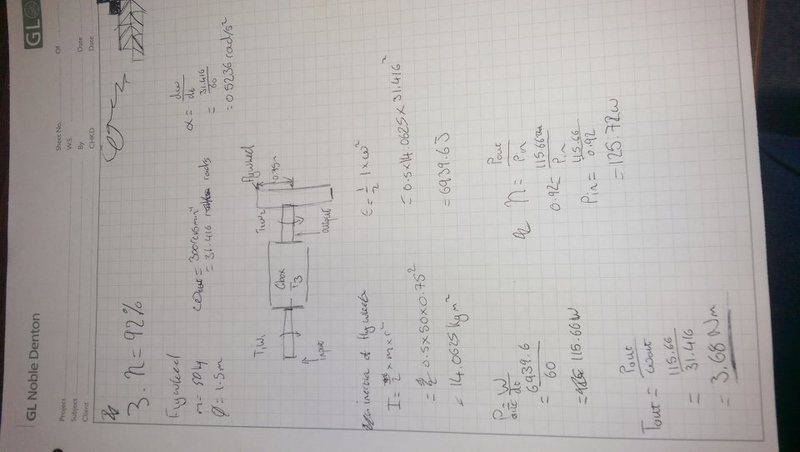 GL Noble Denton
GL
Project
Subject
Client
Sheet No.
W.S.
By
CHKD
Of
Date
Date
3. η = 92%
Flywheel
m = 50kg
Ø = 1.5m
ωout = 300revsmin⁻¹
= 31.416 rads
α = dω/dt
= 31.416/60
= 0.5236 rad/s²
T₁ω₁
Input
Gbox
T3
T₂ω₂
output
Flywheel
0.75m
inertia of flywheel
I = ½ × m × r²
= ½ 0.5 × 50 × 0.75²
= 14.0625 kg m²
ε = ½ I × ω²
= 0.5 × 14.0625 × 31.416²
= 6939.6 J
P = W/dt
= 6939.6/60
= 115.66 W
η = Pout/Pin
0.92 = 115.66/Pin
Pin = 115.66/0.92
= 125.72 W
Tout = Pout/ωout
= 115.66/31.416
= 3.68 Nm